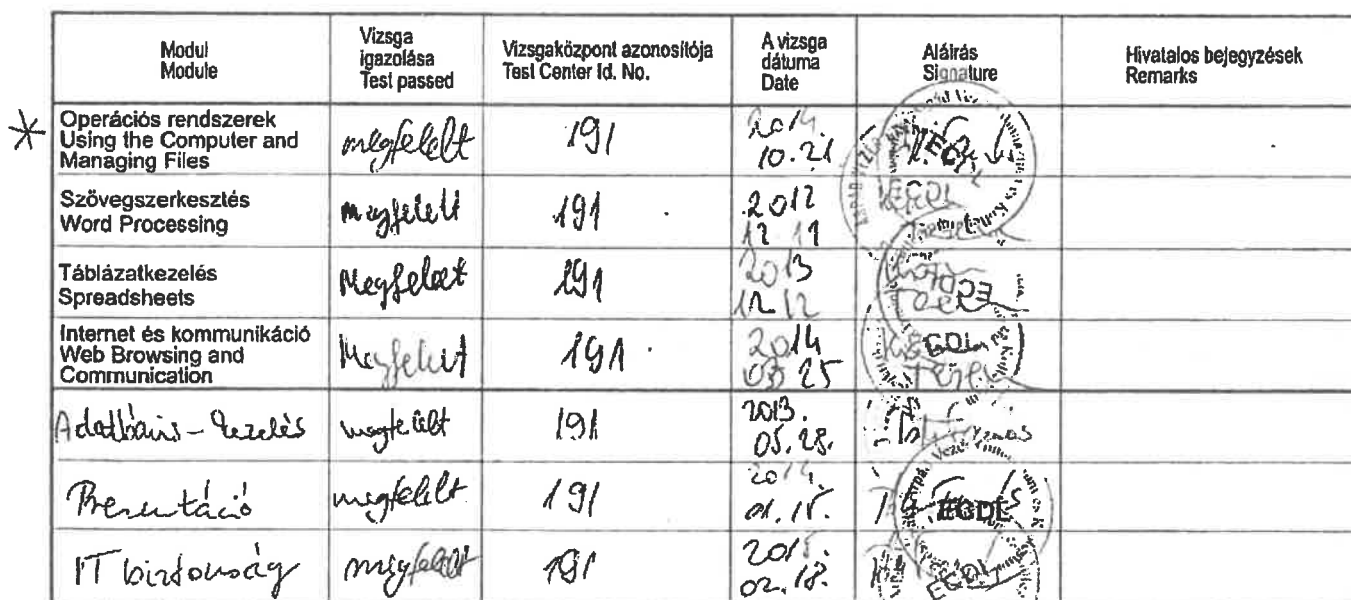 Modul
Module
Vizsga
igazolása
Test passed
Vizsgaközpont azonosítója
Test Center Id. No.
A vizsga
dátuma
Date
Aláírás
Signature
Hivatalos bejegyzések
Remarks
Operációs rendszerek
Using the Computer and
Managing Files
megfelelt
191
2014.
10.21
Szövegszerkesztés
Word Processing
Megfelelt
191
2012
12 11
Táblázatkezelés
Spreadsheets
Megfelelt
191
2013
12 12
Internet és kommunikáció
Web Browsing and
Communication
Megfelelt
191
2014
03 25
Adatbázis-kezelés
megfelelt
191
2013.
05.28.
Prezentáció
megfelelt
191
2014.
01.15.
IT biztonság
megfelelt
191
2015.
02.18.
ECDL
ECDL
ECDL
ECDL
ECDL
ECDL